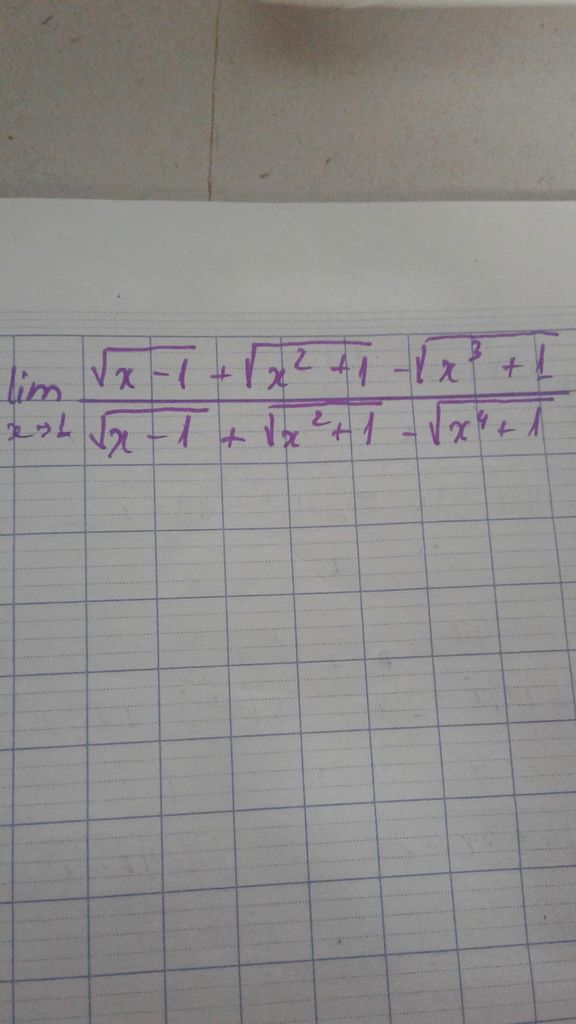 lim √x-1 + √x²+1 - √x³+1
x→1 √x-1 + √x²+1 - √x⁴+1